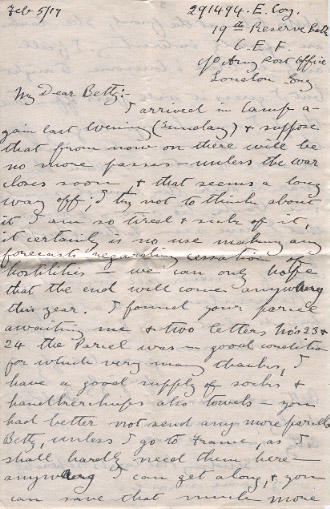 Feb 5/17
291494. E. Coy.
19th Reserve Batt
C. E. F.
c/o Army Post Office
London Eng
My Dear Betty:-
I arrived in Camp a-
gain last evening (Sunday) & suppose
that from now on there will be
no more passes - unless the war
closes soon & that seems a long
way off; I try not to think about
it I am so tired & sick of it,
it certainly is no use making any
forecasts regarding cessation of
hostilities - we can only hope
that the end will come anyway
this year. I found your parcel
awaiting me & two letters No's 23 &
24 the parcel was in good condition
for which very many thanks, I
have a good supply of socks &
handkerchiefs also towels - you
had better not send any more parcels
Betty, unless I go to France, as I
shall hardly need them here -
anyway I can get along, & you
can save that much more